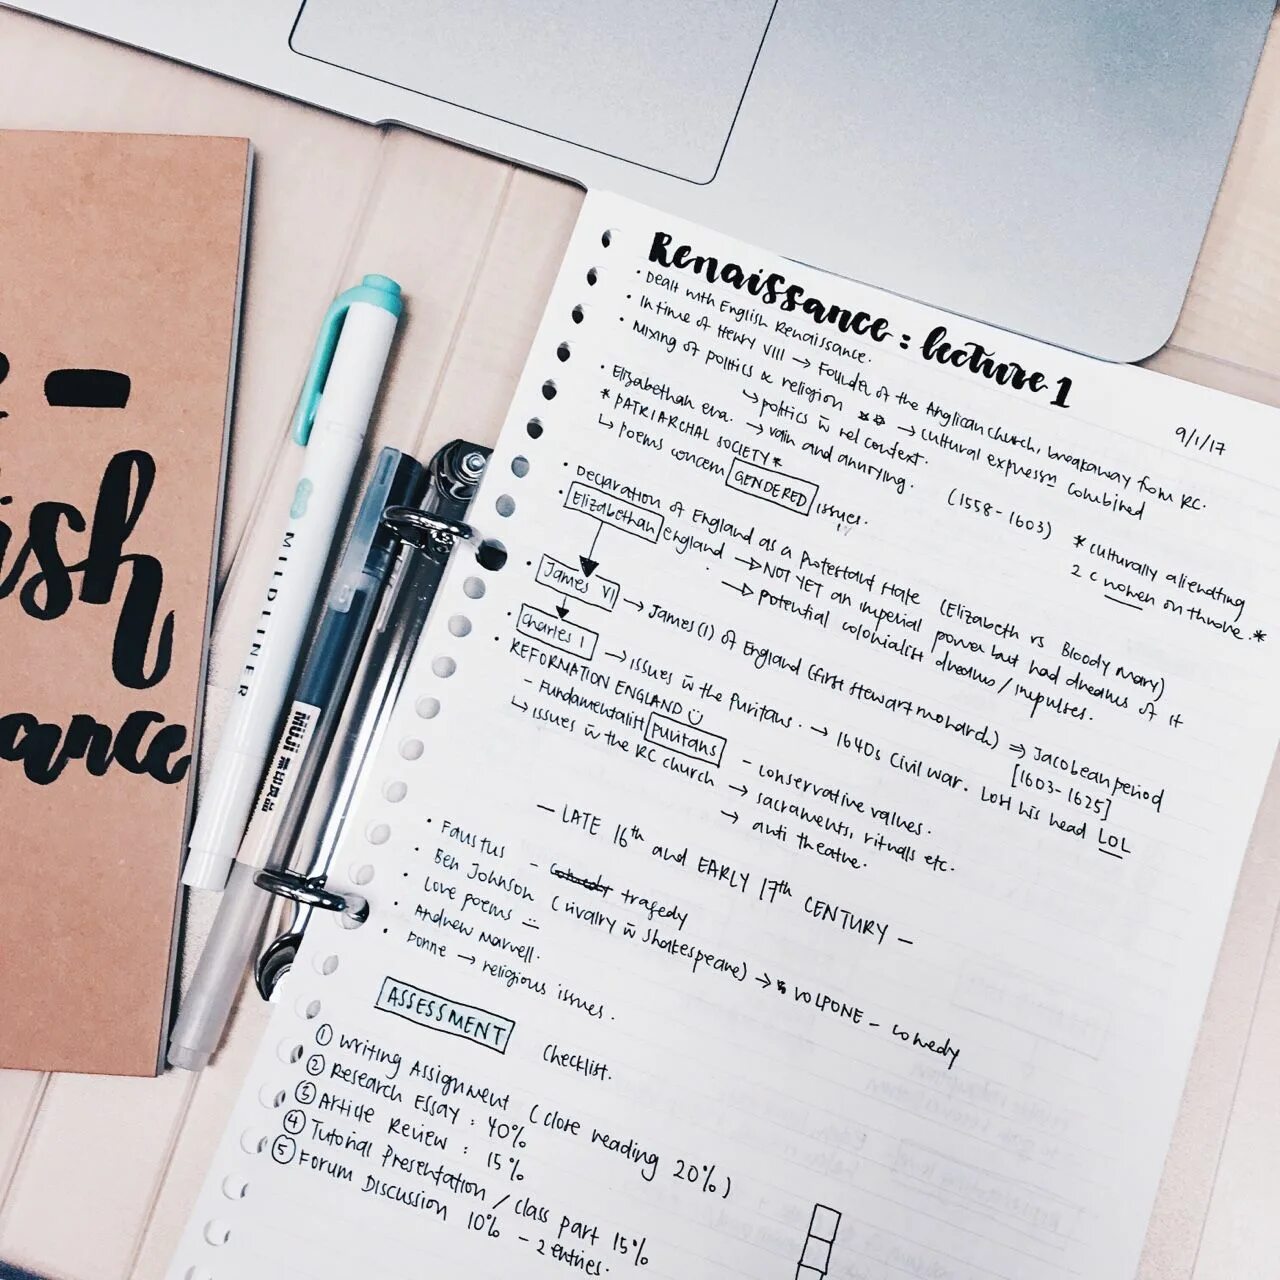 Renaissance : lecture 1
9/1/17
• Dealt with English Renaissance.
• In time of Henry VIII → Founder of the Anglican church, breakaway from RC.
• Mixing of politics & religion ** → cultural expression combined
↳ politics w̄ rel context.
• Elizabethan era. → vain and annoying. (1558-1603)
* culturally alienating
2 c women on throne. *
* PATRIARCHAL SOCIETY *
↳ poems concern GENDERED issues.
• Declaration of England as a Protestant state (Elizabeth vs Bloody Mary)
• Elizabethan England → NOT YET an imperial power but had dreams of it
→ potential colonialist dreams / impulses.
• James VI → James (I) of England (first stewart monarch) ⇒ Jacobean period
[1603-1625]
• Charles I → issues w̄ the Puritans. → 1640s civil war. Lost his head LOL
• REFORMATION ENGLAND
- Fundamentalist Puritans - conservative values.
↳ issues w̄ the RC church → sacraments, rituals etc.
→ anti theatre.
— LATE 16th and EARLY 17th CENTURY —
• Faustus - comedy tragedy
• Ben Johnson (rivalry w̄ Shakespeare) → VOLPONE - comedy
• Love poems
• Andrew Marvell.
• Donne → religious issues.
ASSESSMENT checklist.
① Writing Assignment (close reading 20%)
② Research Essay : 40%
③ Article Review : 15%
④ Tutorial Presentation / class part 15%
⑤ Forum Discussion 10% - 2 entries.
MILDLINER
MUJI 無印良品
ish
ance